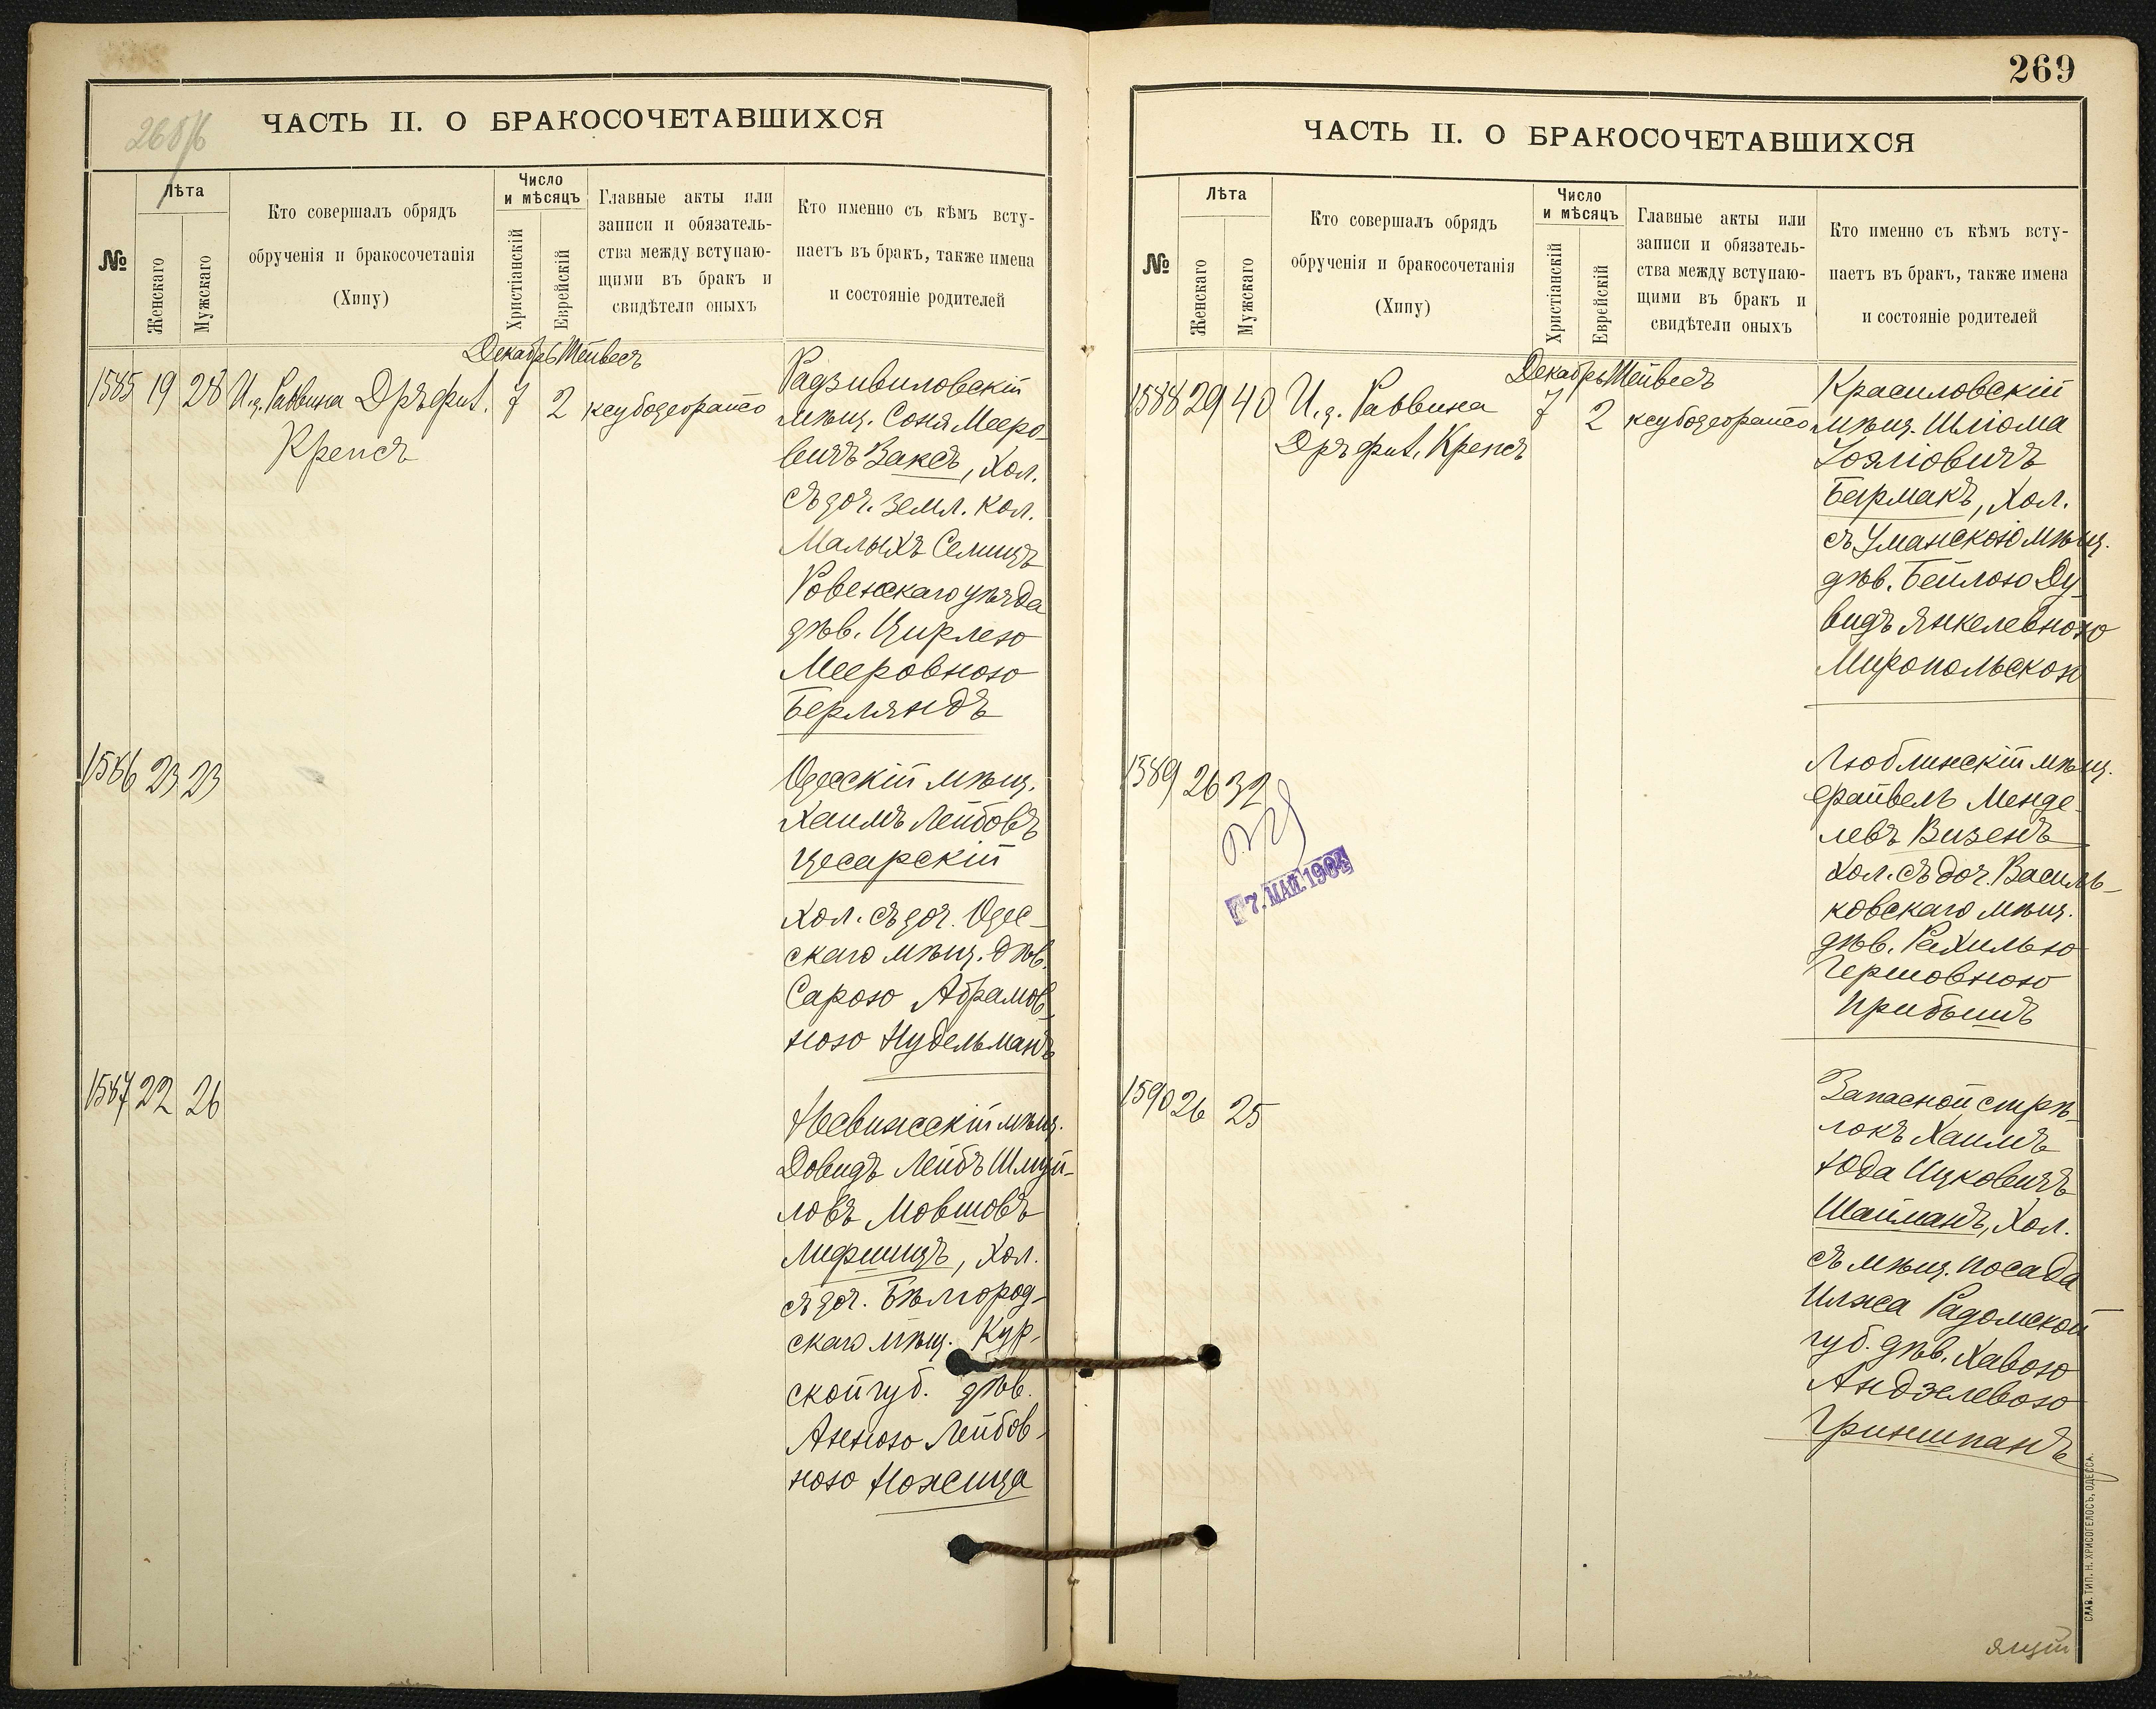 268/б
ЧАСТЬ II. О БРАКОСОЧЕТАВШИХСЯ
№
Лѣта
Женскаго
Мужскаго
Кто совершалъ обрядъ
обрученія и бракосочетанія
(Хипу)
Число
и мѣсяцъ
Христіанскій
Еврейскій
Главные акты или
записи и обязатель-
ства между вступаю-
щими въ бракъ и
свидѣтели оныхъ
Кто именно съ кѣмъ всту-
паетъ въ бракъ, также имена
и состояніе родителей
Декабрь Тейвесъ
1585 19 28 И.д. Раввина Дръ фил. 7 2
Крепсъ
Радзивиловскій
мѣщ. Соня Мееро-
вичъ Заксъ, хол.
съ доч. земл. кол.
Малыхъ Селищъ
Ровенскаго уѣзда
дѣв. Цирлею
Мееровною
Берляндъ
1586 23 23
Одесскій мѣщ.
Хаимъ Лейбовъ
Цесарскій
хол. съ доч. Одес-
скаго мѣщ. дѣв.
Сарою Абрамов-
ною Нудельманъ
1587 22 26
Несвижскій мѣщ.
Довидъ Лейбъ Шмуй-
ловъ Мовшовъ
Лифшицъ, хол.
съ доч. Бѣлгород-
скаго мѣщ. Кур-
ской губ. дѣв.
Анною Лейбов-
ною Ножица
269
ЧАСТЬ II. О БРАКОСОЧЕТАВШИХСЯ
№
Лѣта
Женскаго
Мужскаго
Кто совершалъ обрядъ
обрученія и бракосочетанія
(Хипу)
Число
и мѣсяцъ
Христіанскій
Еврейскій
Главные акты или
записи и обязатель-
ства между вступаю-
щими въ бракъ и
свидѣтели оныхъ
Кто именно съ кѣмъ всту-
паетъ въ бракъ, также имена
и состояніе родителей
Декабрь Тейвесъ
1588 29 40 И.д. Раввина 7 2
Дръ фил. Крепсъ
Красиловскій
мѣщ. Шлiома
Іоэліовичъ
Бермакъ, хол.
съ Уманскою мѣщ.
дѣв. Бейлою Ду-
видъ Янкелевною
Миропольскою
1589 26 32
7. МАЙ 1904
Люблинскій мѣщ.
Файвель Менде-
левъ Визенъ
хол. съ доч. Василь-
ковскаго мѣщ.
дѣв. Рахилью
Гершовною
Прибышъ
1590 26 25
Запасной стрѣ-
локъ Хаимъ
Юда Ицковичъ
Шайманъ, хол.
съ мѣщ. посада
Илжа Радомской
губ. дѣв. Хавою
Андзелевою
Гриншпанъ
СЛАВ. ТИП. Н. ХРИСОГЕЛОСЪ, ОДЕССА.